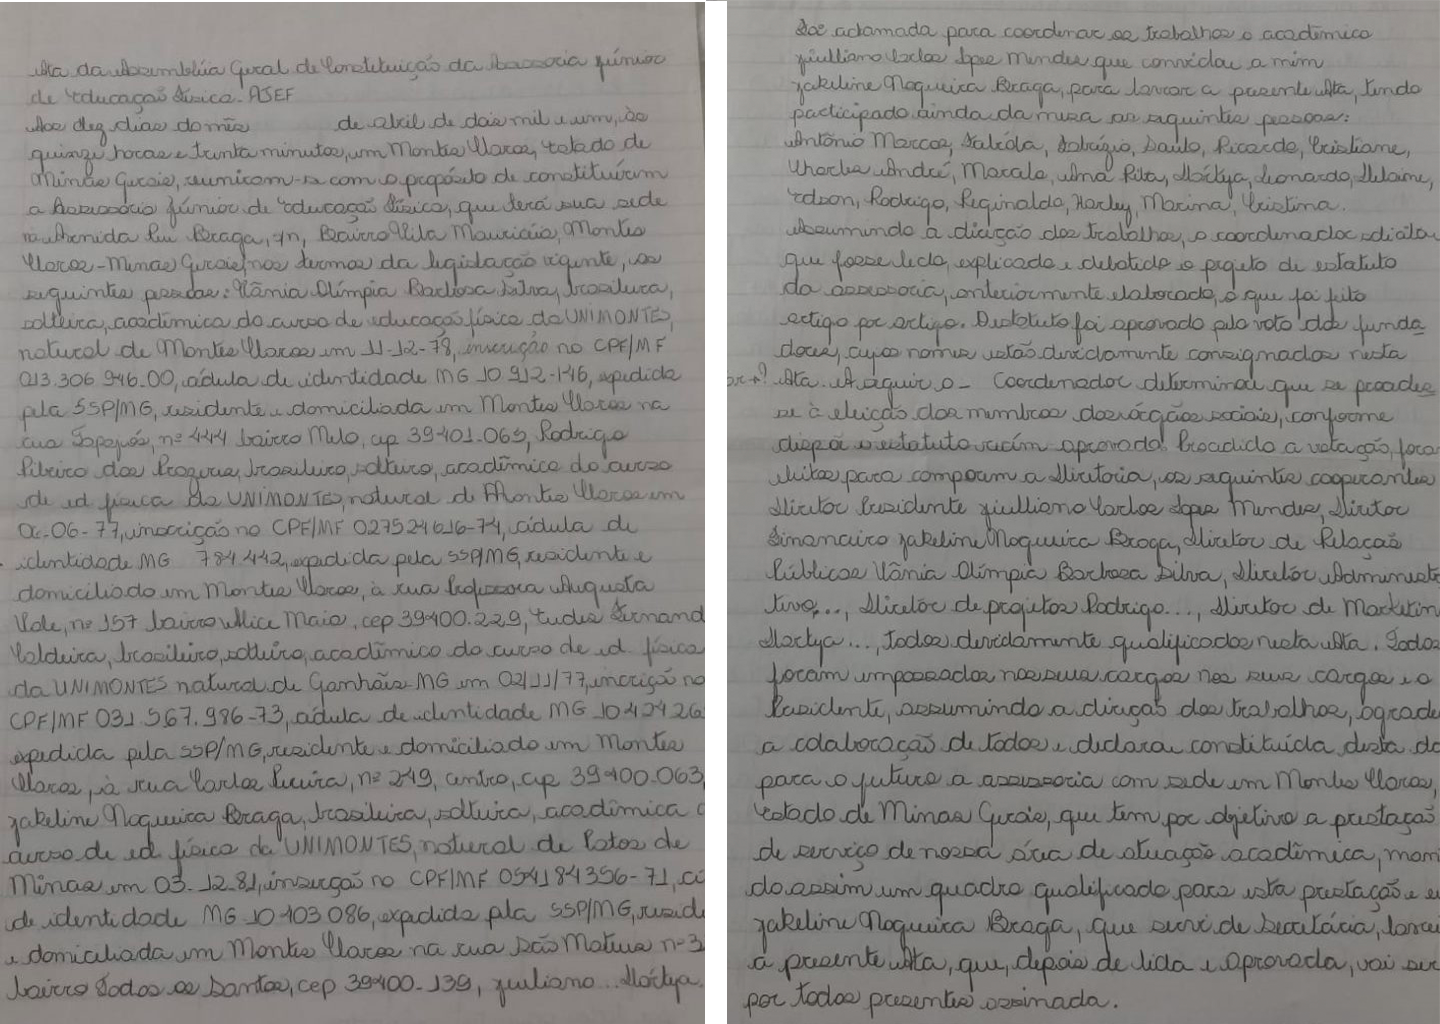 Ata da Assembléia Geral de Constituição da Assessoria Júnior
de Educação Física. AJEF
Aos dez dias do mês de abril de dois mil e um, às
quinze horas e trinta minutos, em Montes Claros, Estado de
Minas Gerais, reuniram-se com o propósito de constituírem
a Assessoria Júnior de Educação Física, que terá sua sede
na Avenida Rui Braga, s/n, Bairro Vila Mauricéia, Montes
Claros-Minas Gerais, nos termos da legislação vigente, as
seguintes pessoas: Vânia Olímpia Barbosa Silva, brasileira,
solteira, acadêmica do curso de educação física da UNIMONTES,
natural de Montes Claros em 11-12-78, inscrição no CPF/MF
013.306 946.00, cédula de identidade MG 10 912-146, expedida
pela SSP/MG, residente e domiciliada em Montes Claros na
rua Tapajós, nº 444 bairro Melo, cep 39401-065, Rodrigo
Ribeiro dos brasileiro, solteiro, acadêmico do curso
de ed física da UNIMONTES, natural de Montes Claros em
-06-77, inscrição no CPF/MF 027524616-74, cédula de
identidade MG 784 442, expedida pela SSP/MG, residente e
domiciliado em Montes Claros, à rua Professora Augusta
Vale, nº 157 bairro Alice Maia, cep 39400.229, Eudes Fernand
Caldeira, brasileiro, solteiro, acadêmico do curso de ed. física
da UNIMONTES natural de Ganhães-MG em 02/11/77, incrição no
CPF/MF 031 567.986-73, cédula de identidade MG 1042426
expedida pela SSP/MG, residente e domiciliado em Montes
Claros, à rua Carlos Pereira, nº 249, centro, cep 39400.063,
Jakeline Nogueira Braga, brasileira, solteira, acadêmica
curso de ed física da UNIMONTES, natural de Patos de
Minas em 03-12-81, inscrição no CPF/MF 054184356-71, cé
de identidade MG-10 403 086, expedida pela SSP/MG, resid
e domiciliada em Montes Claros na rua São Mateus nº 3
bairro Todos os Santos, cep 39400-139, Juliano... Hóctya.
Foi aclamada para coordenar os trabalhos o acadêmico
Jiulliano Carlos Lopes Mendes que convidou a mim
Jakeline Nogueira Braga, para lavrar a presente Ata, tendo
participado ainda da mesa as seguintes pessoas:
Antônio Marcos, Fabíola, Fabrízio, Saulo, Ricardo, Cristiane,
Charles André, Marcelo, Ana Rita, Hóctya, Leonardo, Helaine,
Edson, Rodrigo, Reginaldo, Harley, Marina, Cristina.
Assumindo a direção dos trabalhos, o coordenador solicitou
que fosse lido, explicado e debatido o projeto de estatuto
da assessoria, anteriormente elaborado, o que foi feito
artigo por artigo. O estatuto foi aprovado pelo voto dos funda
dores, cujos nomes estão devidamente consignados nesta
Ata. A seguir o - Coordenador determinou que se procedes
se à eleição dos membros dos órgãos sociais, conforme
dispõe o estatuto recém aprovado. Procedido a votação, fora
eleitos para comporem a Diretoria, os seguintes cooperantes
Diretor Presidente Jiulliano Carlos Lopes Mendes, Diretor
Financeiro Jakeline Nogueira Braga, Diretor de Relação
Públicas Vânia Olímpia Barbosa Silva, Diretor Administra
tivo..., Diretor de projetos Rodrigo..., Diretor de Marketin
Hóctya..., todos devidamente qualificados nesta Ata. Todos
foram empossados nos seus cargos nos seus cargos e o
Presidente, assumindo a direção dos trabalhos, agrade
a colaboração de todos e declarou constituída desta da
para o futuro a assessoria com sede em Montes Claros,
Estado de Minas Gerais, que tem por objetivo a prestação
de serviço de nossa área de atuação acadêmica, mon
do assim um quadro qualificado para esta prestação e eu
Jakeline Nogueira Braga, que servi de Secretária, lavrei
a presente Ata, que, depois de lida e aprovada, vai ser
por todos presentes assinada.